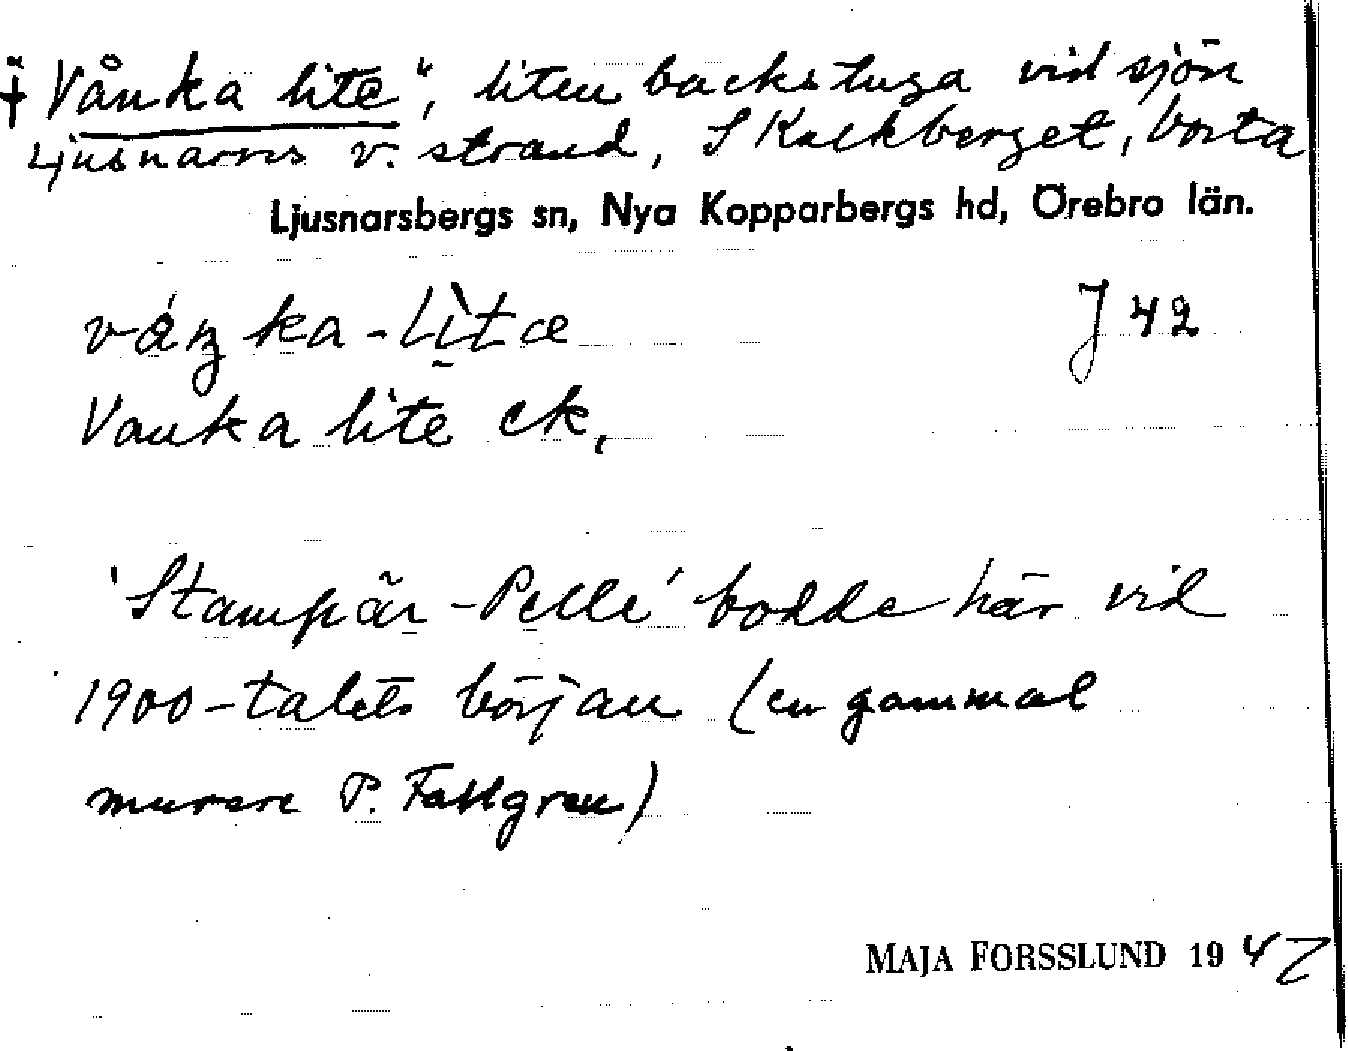 † "Vånka lite", liten backstuga vid sjön
Ljusnarns v. strand, S Kalkberget, borta
Ljusnarsbergs sn, Nya Kopparbergs hd, Örebro län.
våŋka-lìtæ J 42
Vanka lite ek,
'Stampär-Pelle' bodde här vid
1900-talets början (en gammal
murare P. Fallgren)
MAJA FORSSLUND 1942